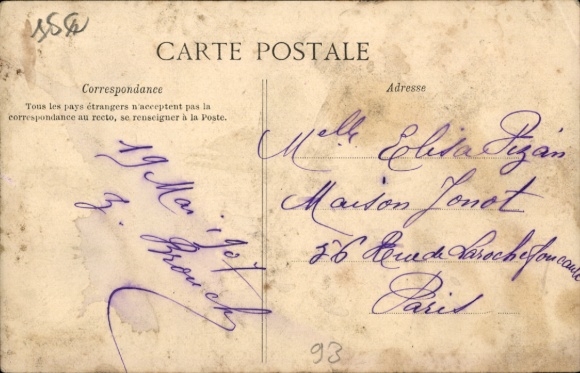 CARTE POSTALE
Correspondance
Tous les pays étrangers n'acceptent pas la
correspondance au recto, se renseigner à la Poste.
19 Mai 1907
Adresse
Melle Elisa Pizán
Maison Jonot
56 Rue de Larochefoucault
Paris
93